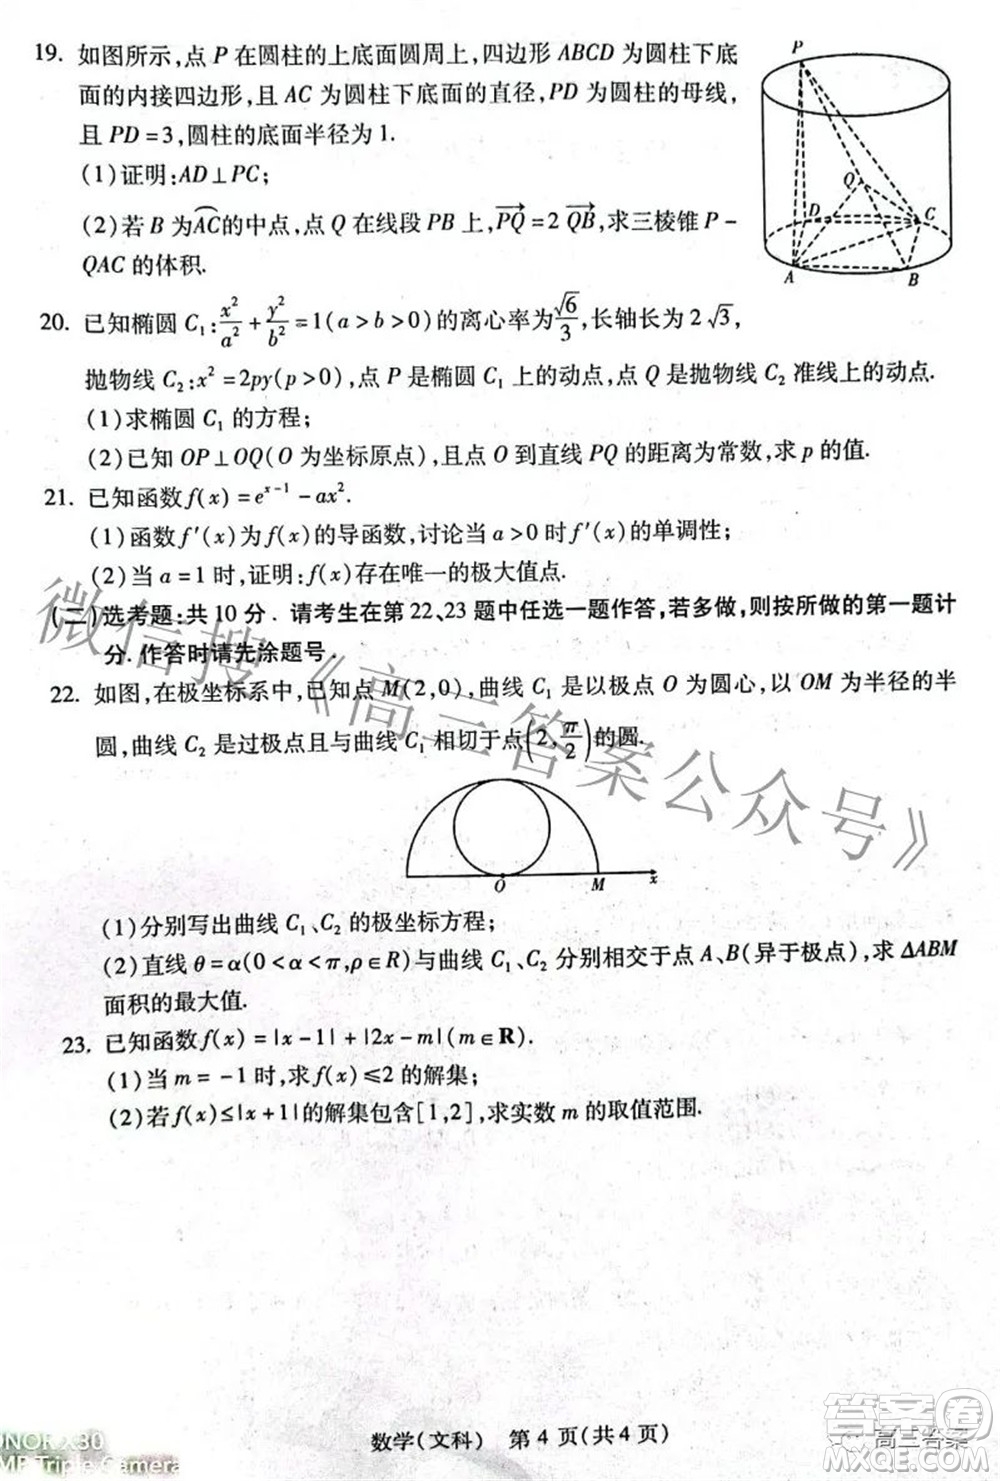 19. 如图所示,点 P 在圆柱的上底面圆周上,四边形 ABCD 为圆柱下底
面的内接四边形,且 AC 为圆柱下底面的直径,PD 为圆柱的母线,
且 PD=3,圆柱的底面半径为 1.
(1)证明:AD⊥PC;
(2)若 B 为 $\overset{\frown}{AC}$ 的中点,点 Q 在线段 PB 上,$\overrightarrow{PQ}=2\overrightarrow{QB}$,求三棱锥 P-
QAC 的体积.
P
Q
D
C
A
B
20. 已知椭圆 $C_1:\frac{x^2}{a^2}+\frac{y^2}{b^2}=1(a>b>0)$的离心率为$\frac{\sqrt{6}}{3}$,长轴长为 $2\sqrt{3}$,
抛物线 $C_2:x^2=2py(p>0)$,点 P 是椭圆 $C_1$ 上的动点,点 Q 是抛物线 $C_2$ 准线上的动点.
(1)求椭圆 $C_1$ 的方程;
(2)已知 OP⊥OQ(O 为坐标原点),且点 O 到直线 PQ 的距离为常数,求 p 的值.
21. 已知函数 $f(x)=e^{x-1}-ax^2$.
(1)函数 f′(x)为 f(x)的导函数,讨论当 a>0 时 f′(x)的单调性;
(2)当 a=1 时,证明:f(x)存在唯一的极大值点.
(二)选考题:共 10 分. 请考生在第 22、23 题中任选一题作答,若多做,则按所做的第一题计
分. 作答时请先涂题号.
22. 如图,在极坐标系中,已知点 M(2,0),曲线 $C_1$ 是以极点 O 为圆心,以 OM 为半径的半
圆,曲线 $C_2$ 是过极点且与曲线 $C_1$ 相切于点$\left(2,\frac{\pi}{2}\right)$的圆.
O
M
x
(1)分别写出曲线 $C_1$、$C_2$ 的极坐标方程;
(2)直线 θ=α(0<α<π,ρ∈R)与曲线 $C_1$、$C_2$ 分别相交于点 A、B(异于极点),求 △ABM
面积的最大值.
23. 已知函数 f(x)=|x-1|+|2x-m|(m∈R).
(1)当 m=-1 时,求 f(x)≤2 的解集;
(2)若 f(x)≤|x+1|的解集包含[1,2],求实数 m 的取值范围.
微信搜《高三答案公众号》
数学(文科) 第 4 页(共 4 页)
ONOR X30
MP Triple Camera
高三答案
答案圈
MXQE.COM